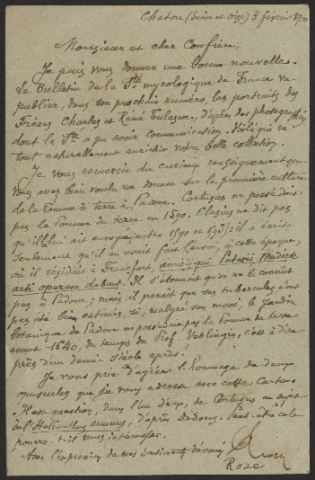 Chatou (Seine et Oise) 3 février
Monsieur et cher Confrère,
Je puis vous donner une bonne nouvelle.
Le Bulletin de la Sté mycologique de France va
publier, dans son prochain numéro, les portraits des
Frères Charles et René Tulasne, d'après des photographies
dont la Sté a pu avoir communication. Voilà qui va
tout naturellement enrichir votre belle collection.
Je vous remercie du curieux renseignement que
vous avez bien voulu me donner sur la première culture
de la Pomme de terre à Padoue. Cortusus ne possédait
pas la Pomme de terre en 1590. Clusius ne dit pas
qu'il lui ait envoyé entre 1590 et 1593: il a écrit
seulement qu'il en avait fait à cette époque,
où il résidait à Francfort,
arti operam dabant. Il s'étonnait qu'on ne le connût
pas à Padoue; mais il paraît que ses tubercules n'ont
pas été bien estimés, si, malgré son mot, le Jardin
botanique de Padoue ne possédait pas la Pomme de terre
avant 1640, du temps du Prof. Veslingius, c'est à dire
près d'un demi-siècle après.
Je vous prie d'agréer l'hommage de deux
opuscules que je vous adresse avec cette Carte.
Il est question, dans l'un d'eux, de Cortusus au sujet
de l'Helianthus annuus, d'après Dodoens. Peut-être cela
pourra-t-il vous intéresser.
Avec l'expression de mes sentiments dévoués
Roze